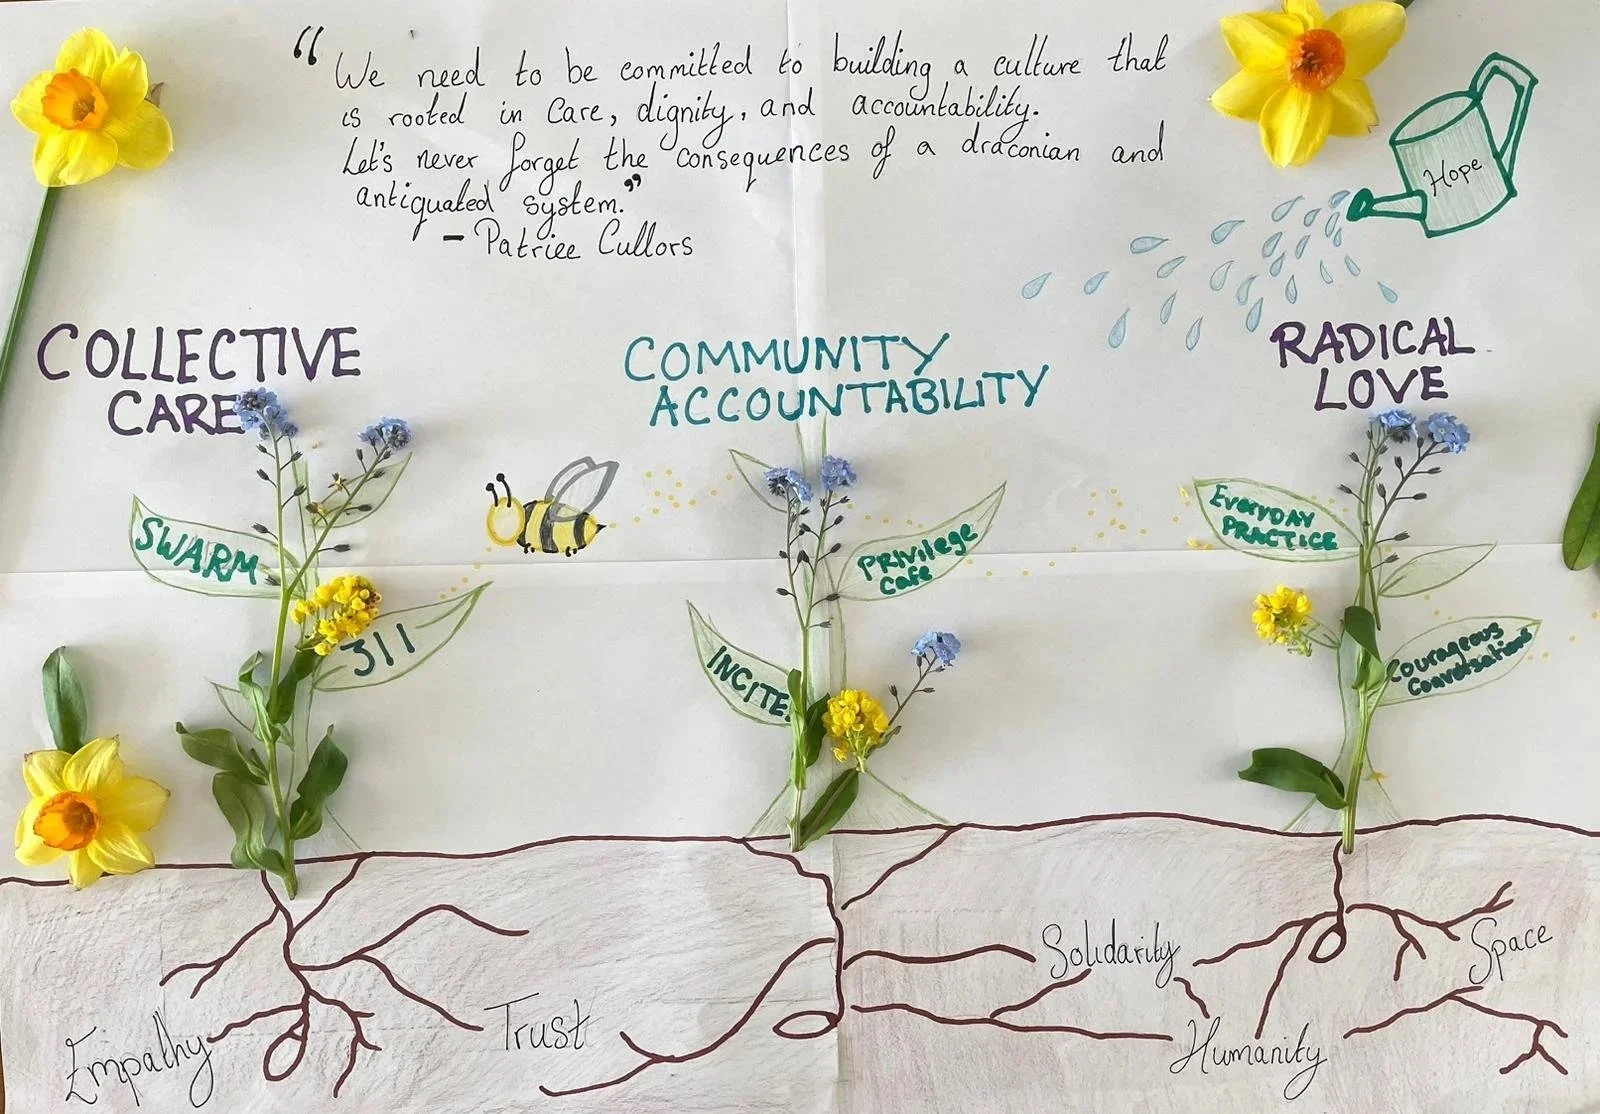 “ We need to be committed to building a culture that
is rooted in Care, dignity, and accountability.
Let's never forget the consequences of a draconian and
antiquated system.”
– Patrice Cullors
Hope
COLLECTIVE
CARE
COMMUNITY
ACCOUNTABILITY
RADICAL
LOVE
SWARM
311
INCITE!
PRIVIlege
Cafe
EVERYDAY
PRACTICE
Courageous
Conversations
Empathy
Trust
Solidarity
Humanity
Space